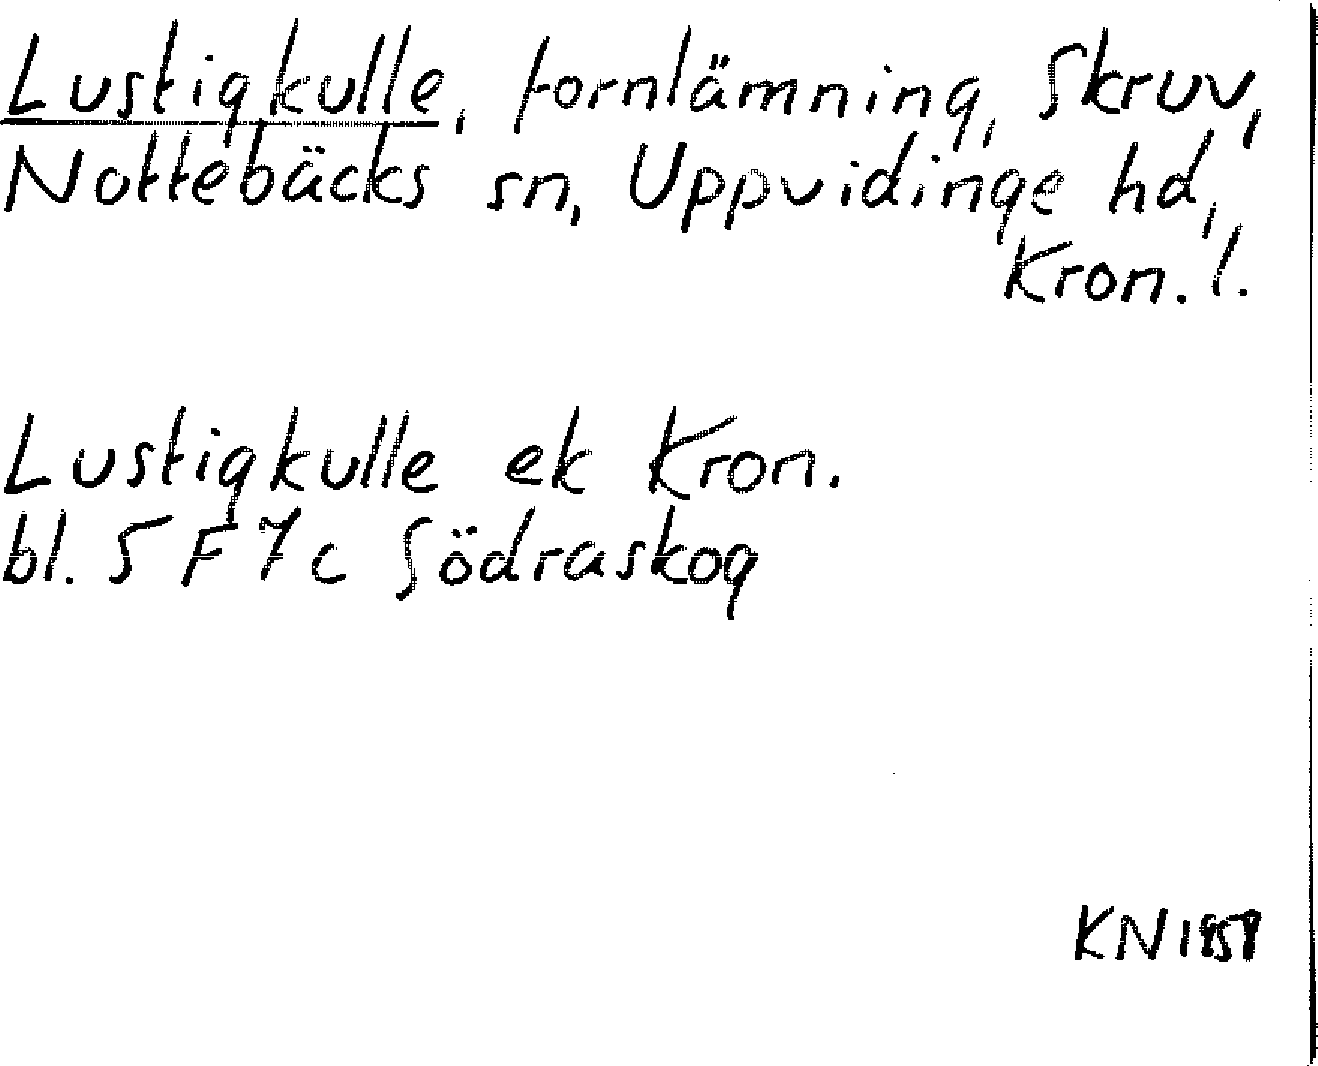 Lustigkulle, fornlämning, Skruv,
Nottebäcks sn, Uppvidinge hd,
Kron. l.
Lustigkulle ek Kron.
bl. 5 F 7 c Södraskog
KN